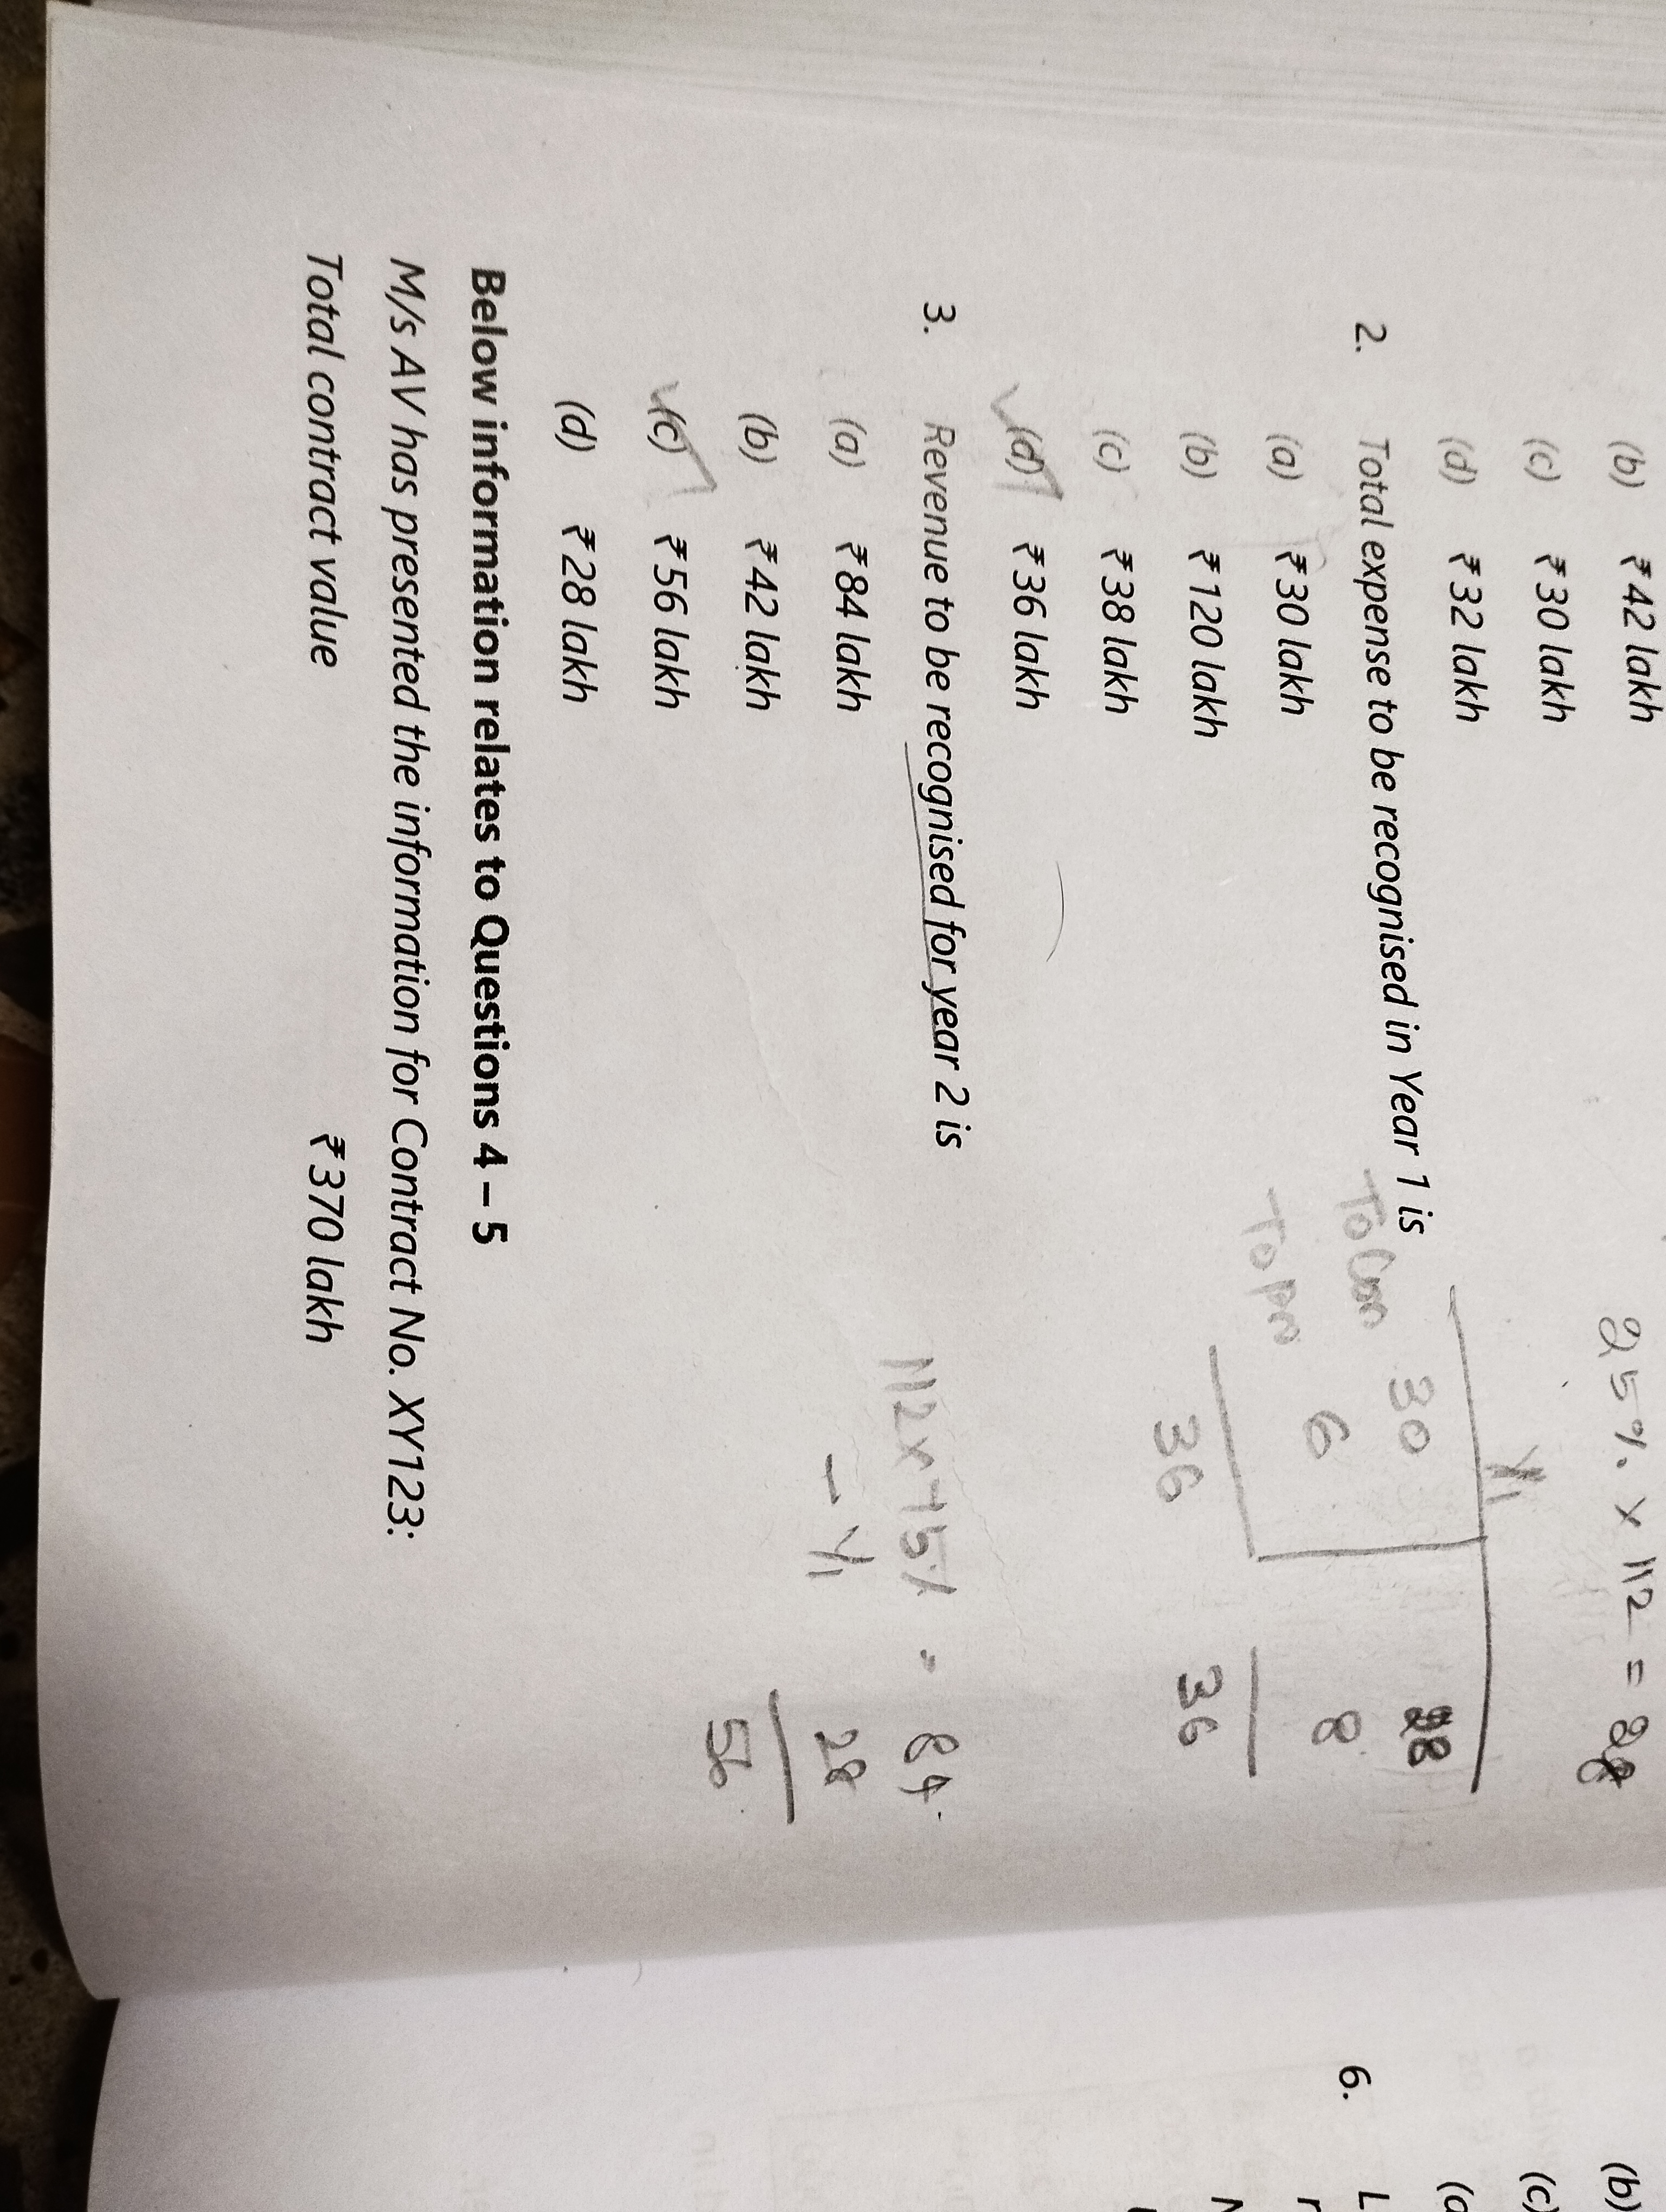 (b) ₹ 42 lakh
(c) ₹ 30 lakh
(d) ₹ 32 lakh
25% x 112 = 28
2. Total expense to be recognised in Year 1 is
(a) ₹ 30 lakh
(b) ₹ 120 lakh
(c) ₹ 38 lakh
(d) ₹ 36 lakh
Y1
To Con 30 28
To Prn 6 8
36 36
3. Revenue to be recognised for year 2 is
(a) ₹ 84 lakh
(b) ₹ 42 lakh
(c) ₹ 56 lakh
(d) ₹ 28 lakh
112 x 75% = 84
- Y1 28
56
Below information relates to Questions 4 – 5
M/s AV has presented the information for Contract No. XY123:
Total contract value ₹ 370 lakh
(b)
(c)
6. L